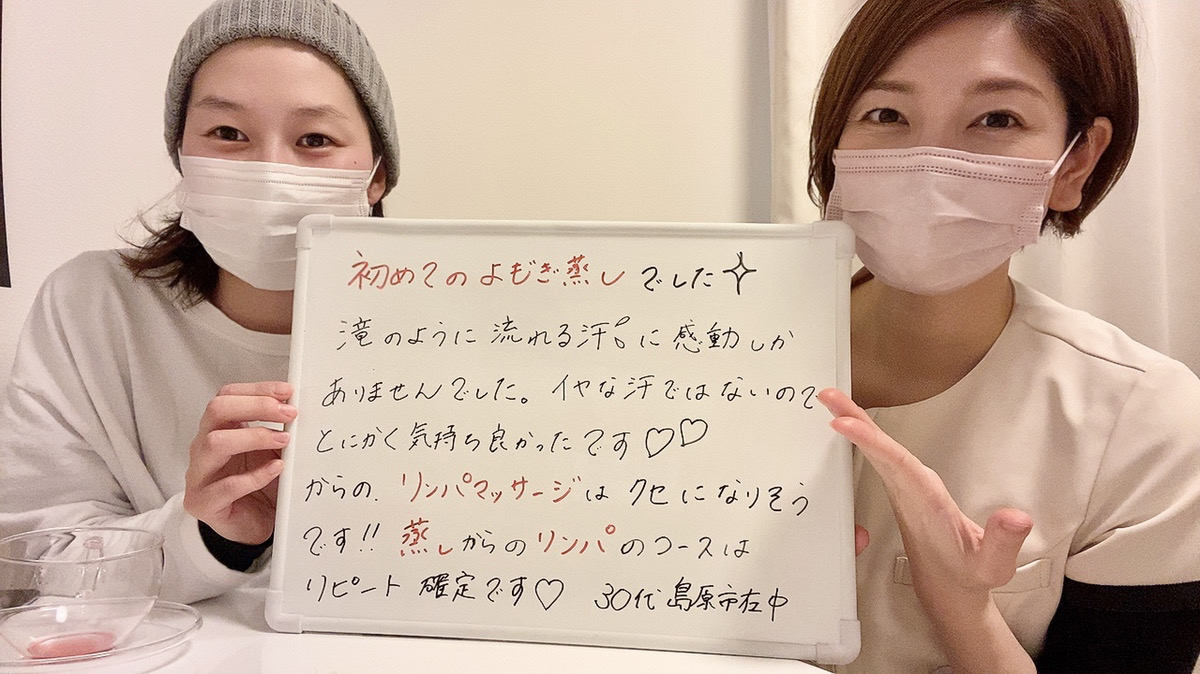 初めてのよもぎ蒸しでした
滝のように流れる汗に感動しか
ありませんでした。イヤな汗ではないので
とにかく気持ち良かったです♡♡
からの、リンパマッサージは クセになりそう
です!! 蒸しからのリンパのコースは
リピート確定です♡ 30代島原市在中